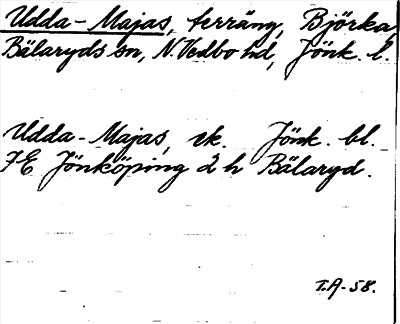 Udda-Majas, terräng, Björka,
Bälaryds sn, N. Vedbo hd, Jönk. l.
Udda-Majas, ek. Jönk. bl.
7E Jönköping 2 h Bälaryd.
T.A-58.